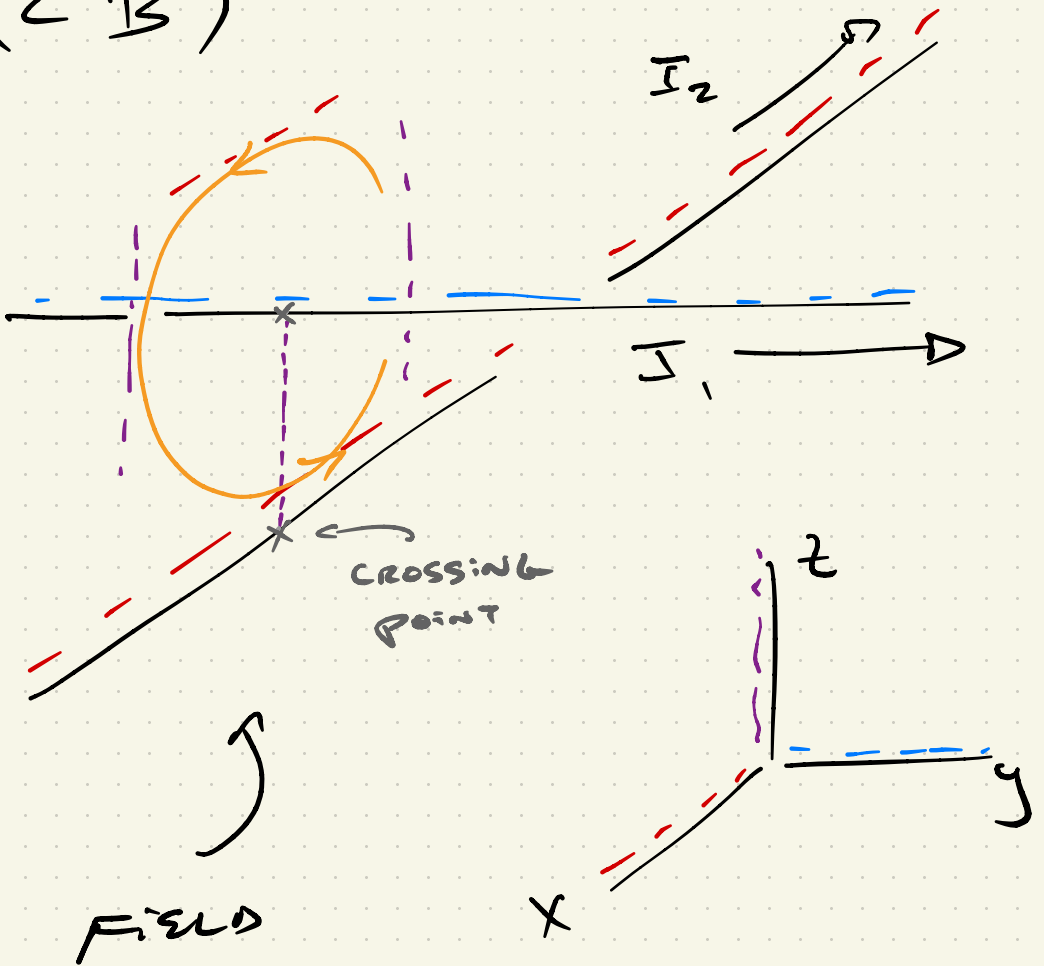 (C B)
I2
I1
CROSSING
POINT
z
y
x
FIELD